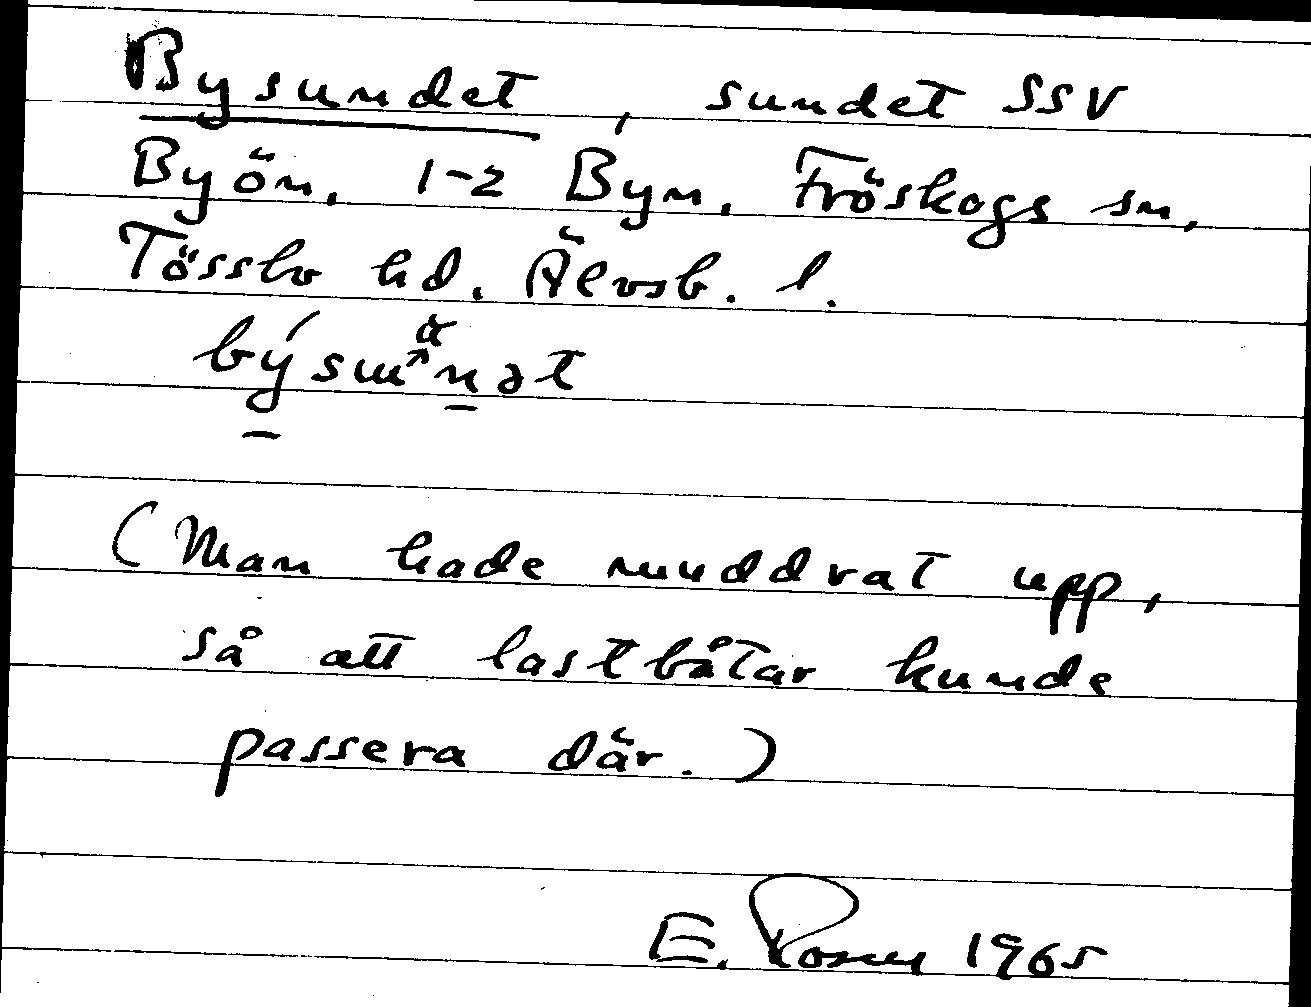 Bysundet, sundet SSV
Byön, 1-2 Byn. Fröskogs sn,
Tössbo hd. Älvsb. l.
(Man hade muddrat upp,
så att lastbåtar kunde
passera där.)
E. 1965